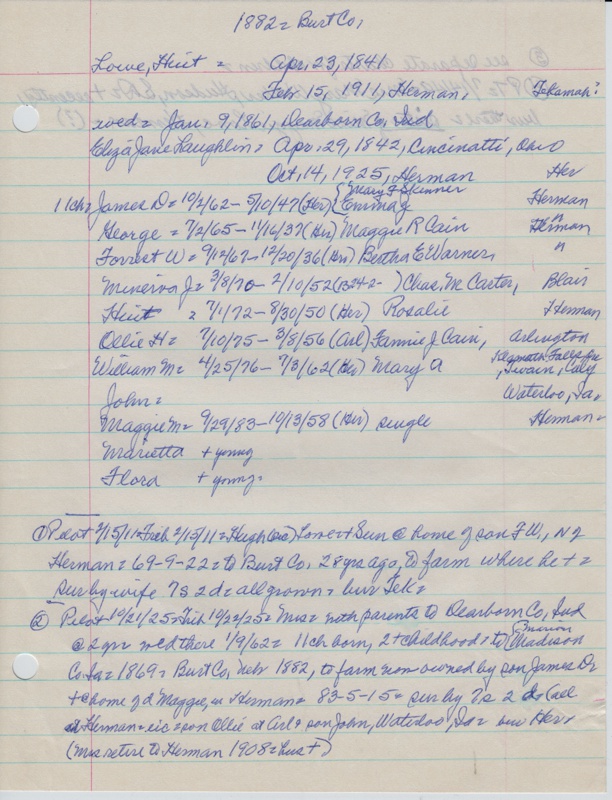 1882 = Burt Co,
Lowe, Hiet = Apr, 23, 1841
Feb 15, 1911, Herman, Tekamah?
wed = Jan, 9, 1861, Dearborn Co, Ind
Eliza Jane Laughlin = Apr, 29, 1842, Cincinatti, Ohio
Oct, 14, 1925, Herman Her
Mary F Skinner
11 ch = James D = 10/2/62 - 5/10/47 (Her) { Emma J Herman
George = 7/2/65 - 1/16/37 (Her) Maggie R Cain Herman
Forrest W = 9/12/67 - 12/20/36 (Her) Bertha E Warner, "
Minerva J = 3/8/70 - 2/10/52 (1324-2- ) Chas, M Carter, Blair
Hiet = 7/1/72 - 8/30/50 (Her) Rosalie Herman
Ollie H = 7/10/75 - 3/8/56 (Arl) Fannie J Cain, Arlington
Klamath Falls, Ore
William M = 4/25/76 - 7/3/62 (Her) Mary A , Twain, Caly
John = Waterloo, Ia,
Maggie M = 9/29/83 - 10/13/58 (Her) single Herman =
Marietta + young
Flora + young =
① Pilot 2/15/11 = Trib 2/15/11 = Hugh (sic) Lowe + Sun @ home of son F W,, N of
Herman = 69-9-22 = to Burt Co, 28 yrs ago, to farm where he + =
sur by wife 7s 2d = all grown = bur Tek =
② Pilot 10/21/25 = Trib 10/22/25 = Mrs = with parents to Dearborn Co, Ind
@ 2 yr wed there 1/9/62 = 11 ch born, 2 + childhood = to Madison
Marion
Co Ia = 1869 = Burt Co, Nebr 1882, to farm now owned by son James D =
+ @ home of d Maggie, in Herman = 83-5-15 = sur by 7s 2 d (all
Herman = exc = son Ollie at Arl & son John, Waterloo, Ia = bur Her =
(Mrs retire to Herman 1908 = hus +)